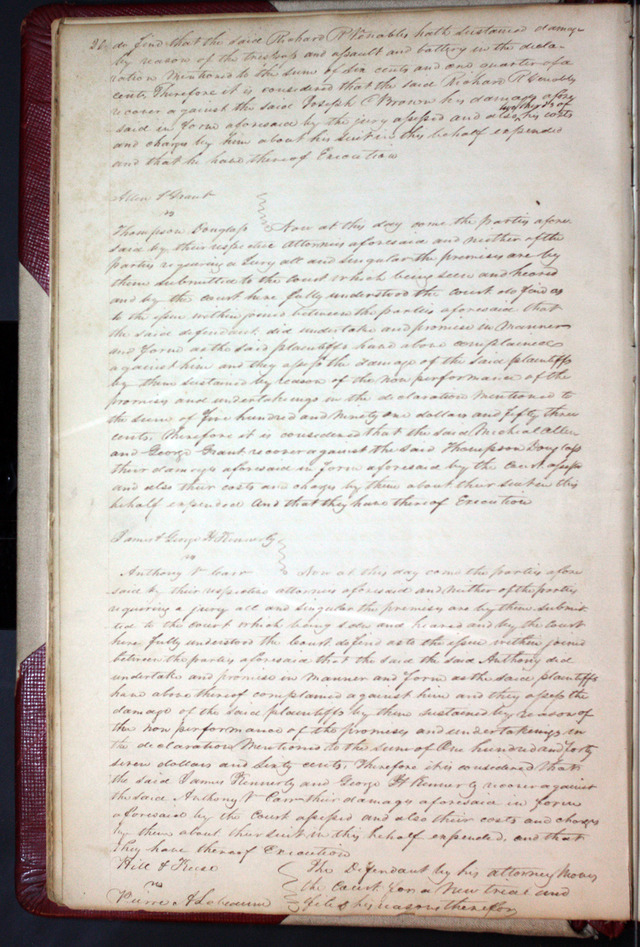 20 do find that the said Richard R Venables hath sustained damage
by reason of the trespass and assault and battery in the decla-
ration mentioned to the sum of six cents and one quarter of a
cent, Therefore it is considered that the said Richard R Venables
recover against the said Joseph C Brown his damages afore
said in form aforesaid by the jury assessed and also his costs
and charges by him about his suit in this behalf expended
and that he have thereof Execution
Allen & Grant
vs
Thompson Douglass Now at this day come the parties afore
said by their respective attornies aforesaid and neither of the
parties requiring a Jury all and singular the premises are by
them submitted to the court which being seen and heard
and by the court here fully understood the court do find as
to the issue within joined between the parties aforesaid that
the said defendant did undertake and promise in Manner
and form as the said plaintiffs have above complained
against him and they assess the damage of the said plaintiffs
by them sustained by reason of the non performance of the
promises and undertakings in the declaration mentioned to
the sum of five hundred and ninety one dollars and fifty three
cents, Therefore it is considered that the said Michael Allen
and George Grant recover against the said Thompson Douglass
their damages aforesaid in form aforesaid by the Court assessed
and also their costs and charges by them about their suit in this
behalf expended And that they have thereof Execution
James & George H Kennerly
vs
Anthony V Carr Now at this day come the parties afore
said by their respective attornies aforesaid and neither of the parties
requiring a jury all and singular the premises are by them submit-
ted to the court which being seen and heard and by the court
here fully understood the Court do find as to the issue within joined
between the parties aforesaid that the said the said Anthony did
undertake and promise in manner and form as the said plaintiffs
have above thereof complained against him and they assess the
damage of the said plaintiffs by them sustained by reason of
the non performance of the promises and undertakings in
the declaration Mentioned to the sum of One hundred and forty
seven dollars and sixty cents, Therefore it is considered that
the said James Kennerly and George H Kennerly recover against
the said Anthony V Carr their damages aforesaid in form
aforesaid by the Court assessed and also their costs and charges
by them about their suit in this behalf expended, and that
they have thereof Execution
Hill & Keese The Defendant by his attorney Moves
vs the court for a New trial and
Pierre A Lebeaume files his reasons therefor